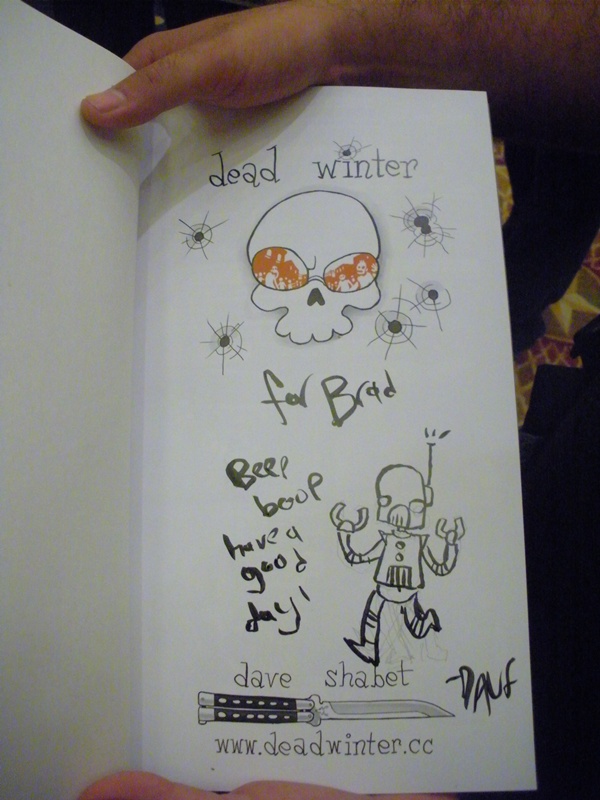 dead winter
for Brad
Beep
boop
have a
good
day!
dave shabet
-Dave
www.deadwinter.cc